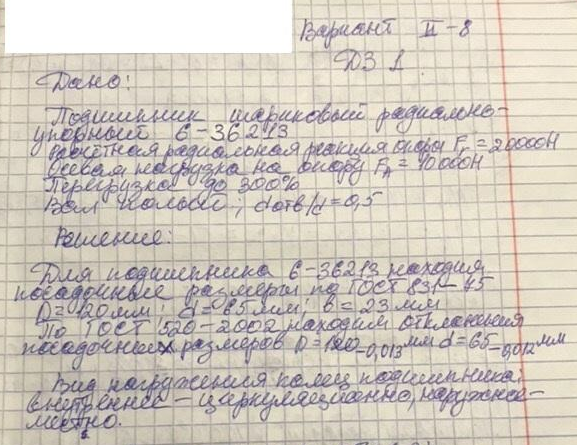 Вариант II-8
ДЗ 1
Дано:
Подшипник шариковый радиально-
упорный 6-36213
расчётная радиальная реакция опоры Fr = 20000Н
осевая нагрузка на опору FA = 10000Н
Перегрузка до 300%
Вал полый; dотв/d = 0,5
Решение:
Для подшипника 6-36213 находим
посадочные размеры по ГОСТ 831-75
D = 120 мм; d = 65 мм; b = 23 мм
По ГОСТ 520-2002 находим отклонения
посадочных размеров D = 120-0,013 мм d = 65-0,012 мм
Вид нагружения колец подшипника:
внутреннее - циркуляционно, наружное-
местно.